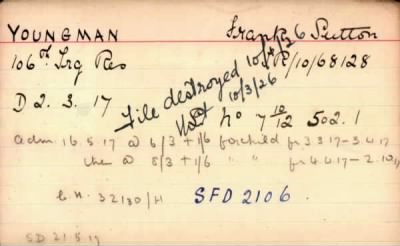 YOUNGMAN Frank C Sutton
106th Trg Res /10/68128
D 2. 3. 17
File destroyed
10/3/26
No 7 10/12 502.1
adm. 16.5.17 @ 6/3 + 1/6 for child fr 3.3.17 - 3.4.17
then @ 5/3 + 1/6 " " fr 4.4.17 - 2.10.17
C.H. 32130/H SFD 2106
SD 21.5.17